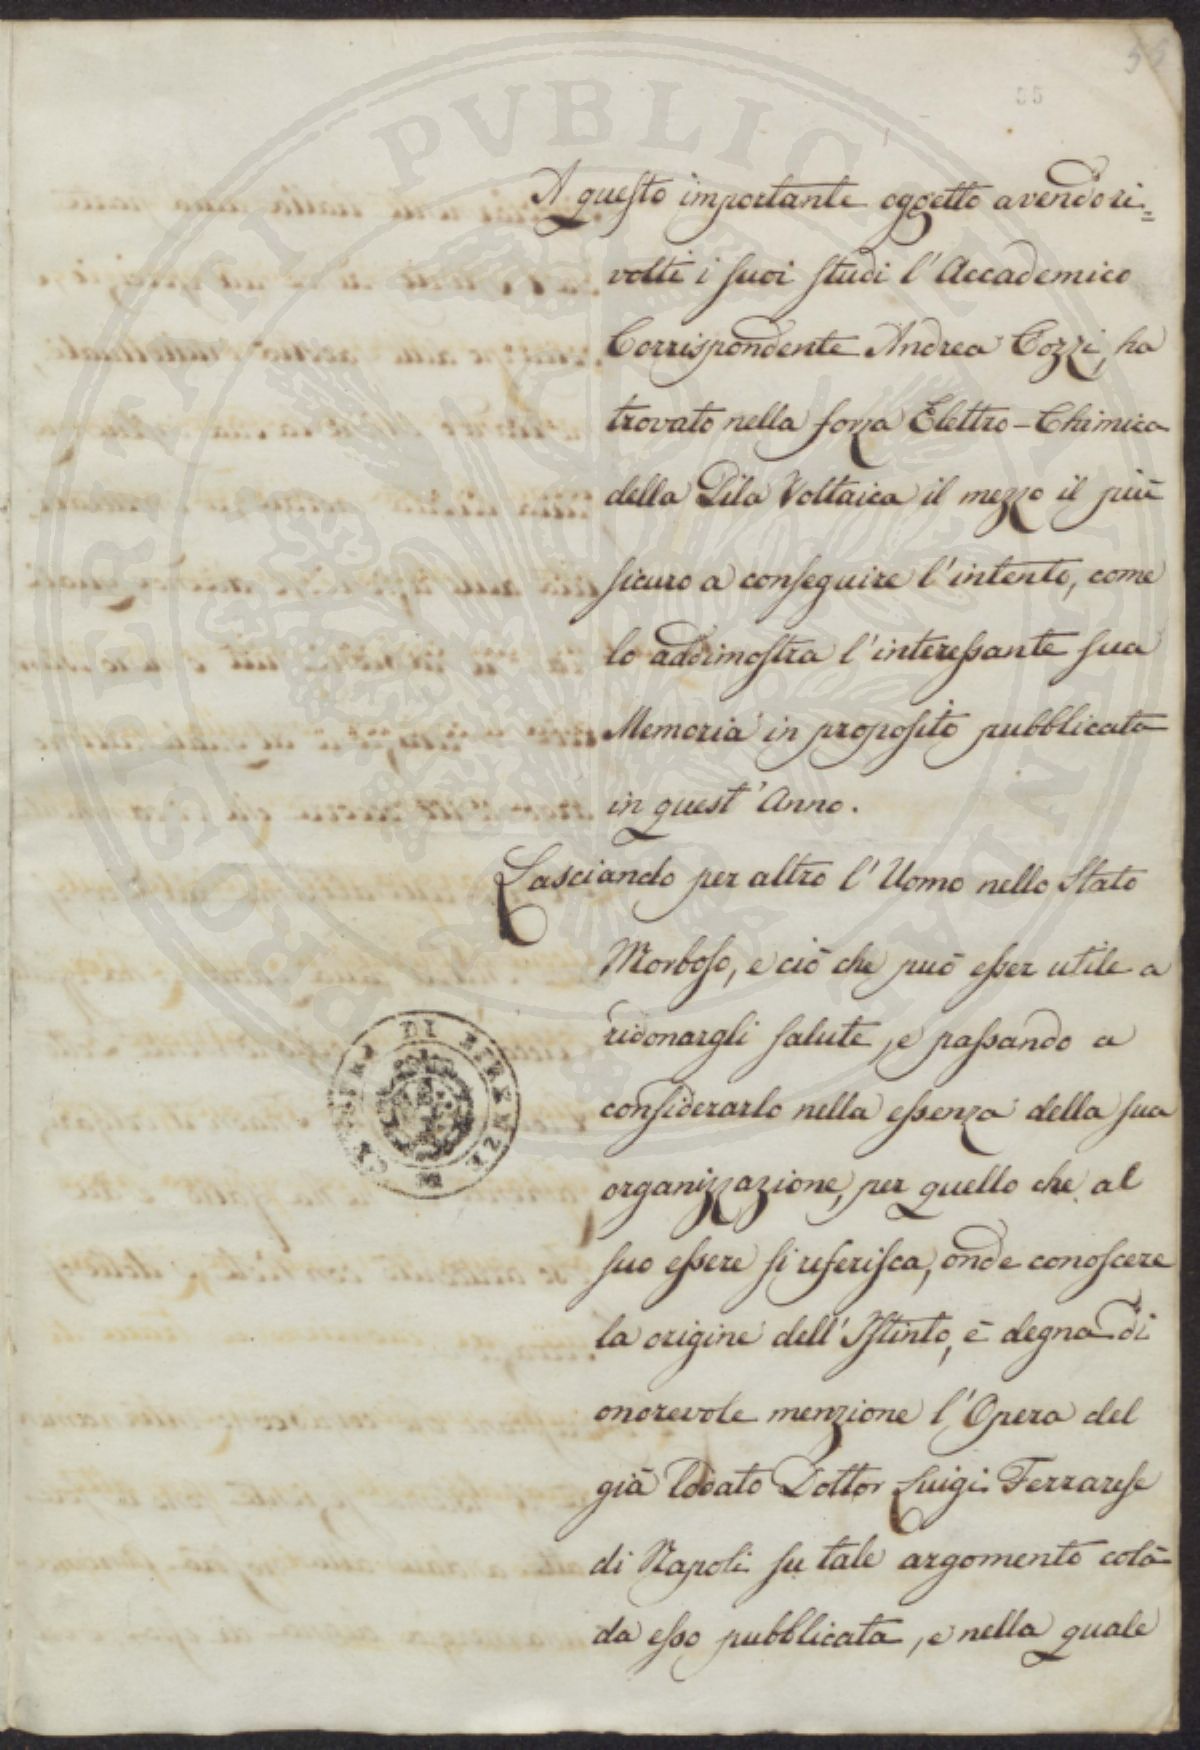 55
A questo importante oggetto avendo ri=
volti i suoi studi l'Accademico
Corrispondente Andrea Cozzi, ha
trovato nella forza Elettro-Chimica
della Pila Voltaica il mezzo il più
sicuro a conseguire l'intento, come
lo addimostra l'interessante sua
Memoria in proposito pubblicata
in quest'Anno.
Lasciando per altro l'Uomo nello Stato
Morboso, e ciò che può esser utile a
ridonargli salute, e passando a
considerarlo nella essenza della sua
organizzazione, per quello che al
suo essere si referisca, onde conoscere
la origine dell'Istinto, è degna di
onorevole menzione l'Opera del
già lodato Dottor Luigi Ferrarese
di Napoli su tale argomento colà
da esso pubblicata, e nella quale
DI FIRENZE